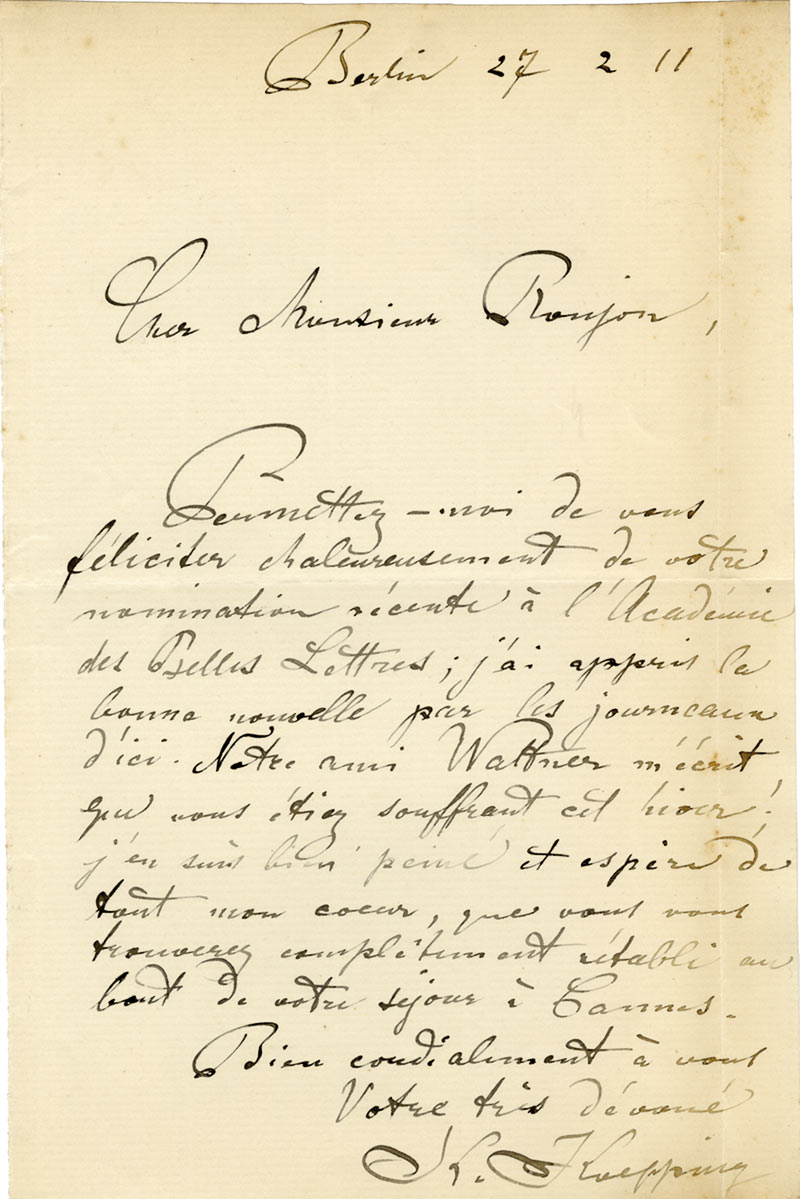 Berlin 27 2 11
Cher Monsieur Roujon,
Permettez-moi de vous
féliciter chaleureusement de votre
nomination récente à l'Académie
des Belles Lettres; j'ai appris la
bonne nouvelle par les journeaux
d'ici. Notre ami Waltner m'écrit
que vous étiez souffrant cet hiver!
j'en suis bien peiné et espère de
tout mon coeur, que vous vous
trouverez complètement rétabli au
bout de votre séjour à Cannes.
Bien cordialement à vous
Votre très dévoué
K. Koepping